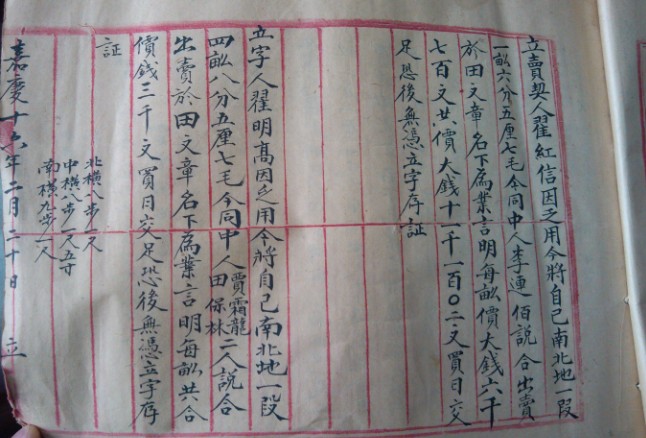 立賣契人翟紅信因乏用今將自己南北地一段
一畝六分五厘七毛今同中人李連佰說合出賣
於田文章名下為業言明每畝價大錢六千
七百文共價大錢十一千一百〇二文買日交
足恐後無憑立字存証
立字人翟明高因乏用今將自己南北地一段
四畝八分五厘七毛今同中人賈霜龍田保林二人說合
出賣於田文章名下為業言明每畝共合
價錢三千文買日交足恐後無憑立字存
証
北橫八步一尺
中橫八步一尺五寸
南橫九步一尺
嘉慶十六年二月二十日 立